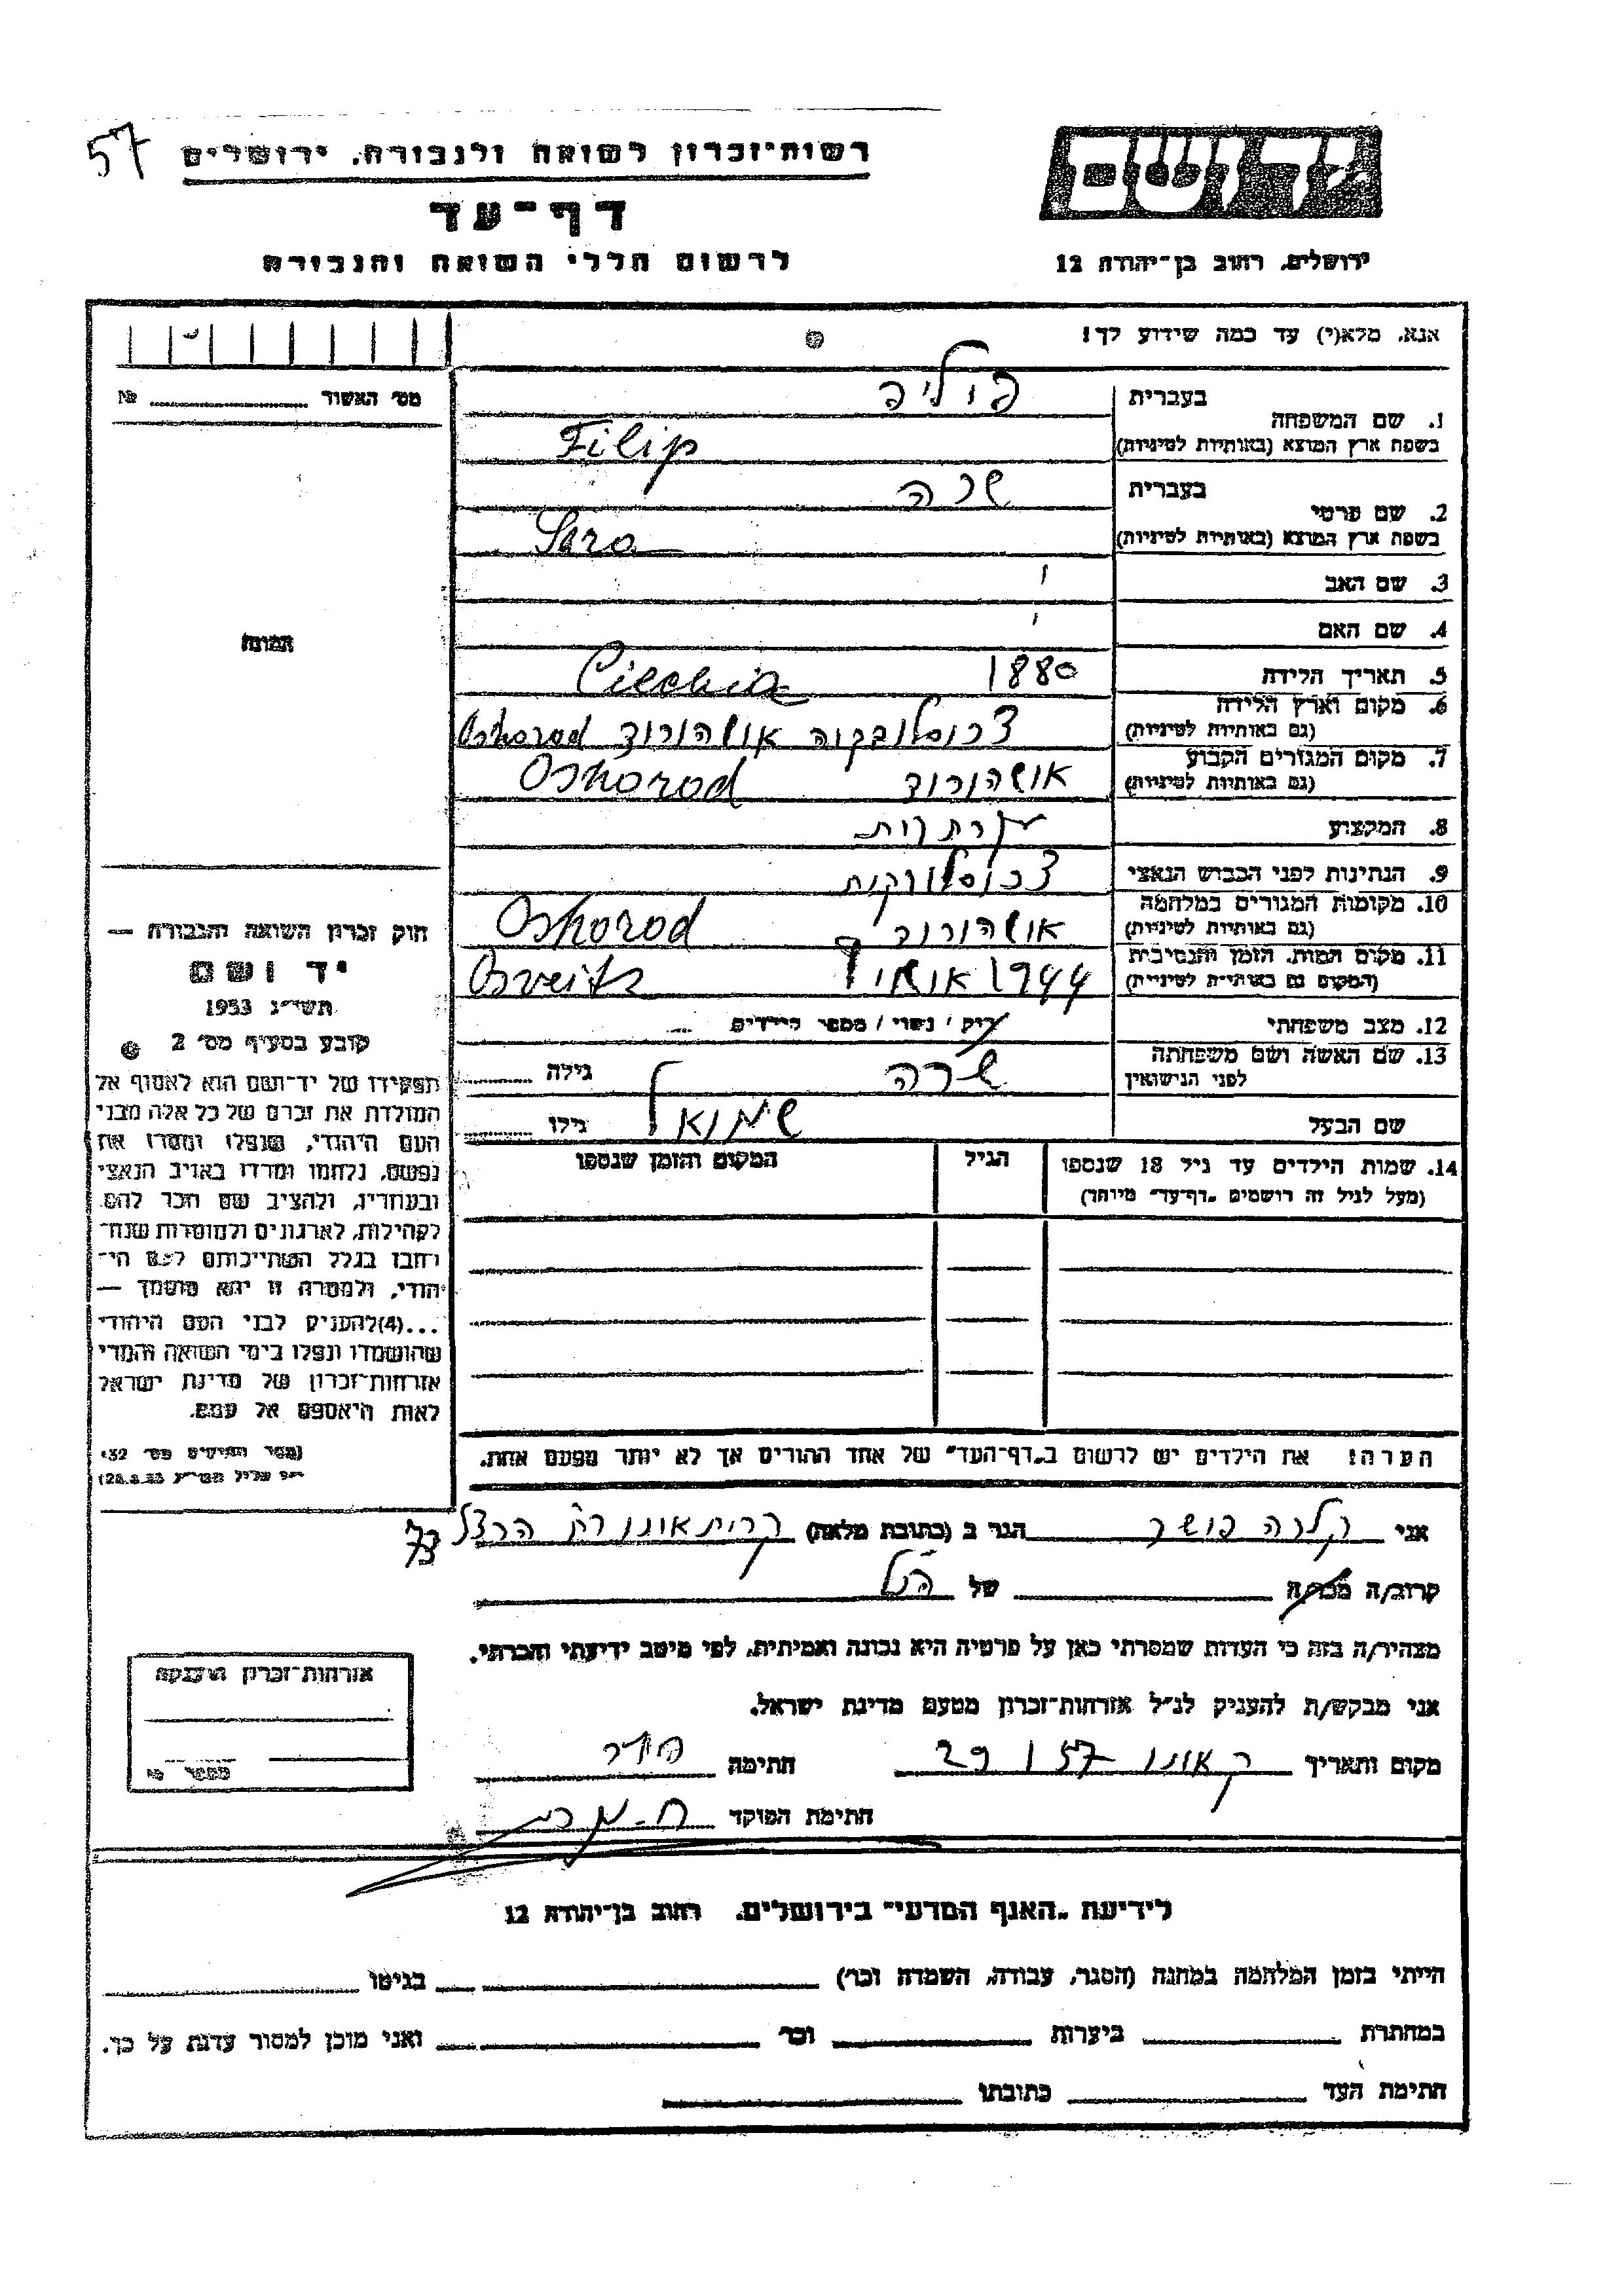 57
רשות־זכרון לשואה ולגבורה, ירושלים
דף־עד
לרשום חללי השואה והגבורה
יד ושם
ירושלים, רחוב בן־יהודה 12
אנא, מלא(י) עד כמה שידוע לך!
מס' האשור № 
1. שם המשפחה
בעברית פיליפ
בשפת ארץ המוצא (באותיות לטיניות) Filip
2. שם פרטי
בעברית שרה
בשפת ארץ המוצא (באותיות לטיניות) Sara
3. שם האב
4. שם האם
התמונה
5. תאריך הלידה 1880
6. מקום וארץ הלידה
(גם באותיות לטיניות) צ'כוסלובקיה אושהורוד Oshorod
7. מקום המגורים הקבוע
(גם באותיות לטיניות) אושהורוד Oshorod
8. המקצוע
9. הנתינות לפני הכבוש הנאצי
10. מקומות המגורים במלחמה
(גם באותיות לטיניות) אושהורוד Oshorod
11. מקום המות, הזמן והנסיבות
(המקום גם באותיות לטיניות) 1944
12. מצב משפחתי רוק / נשוי / מספר הילדים
13. שם האשה ושם משפחתה
לפני הנישואין שרה גילה
שם הבעל שמואל גילו
14. שמות הילדים עד גיל 18 שנספו
(מעל לגיל זה רושמים "דף־עד" מיוחד)
הגיל
המקום והזמן שנספו
הערה! את הילדים יש לרשום ב"דף־העד" של אחד ההורים אך לא יותר מפעם אחת.
חוק זכרון השואה והגבורה —
יד ושם
תשי"ג 1953
קובע בסעיף מס' 2
תפקידו של יד־ושם הוא לאסוף אל
המולדת את זכרם של כל אלה מבני
העם היהודי, שנפלו ומסרו את
נפשם, נלחמו ומרדו באויב הנאצי
ובעוזריו, ולהציב שם וזכר להם,
לקהילות, לארגונים ולמוסדות שנח־
רבו בגלל השתייכותם לעם הי־
הודי, ולמטרה זו יהא מוסמך —
...(4)להעניק לבני העם היהודי
שהושמדו ונפלו בימי השואה והמרי
אזרחות־זכרון של מדינת ישראל
לאות היאספם אל עמם.
אני קלרה הגר ב (כתובת מלאה) קרית אונו רח הרצל 73
קרוב/ה מכר/ה של הנ"ל
מצהיר/ה בזה כי העדות שמסרתי כאן על פרטיה היא נכונה ואמיתית, לפי מיטב ידיעתי והכרתי.
אני מבקש/ת להעניק לנ"ל אזרחות־זכרון מטעם מדינת ישראל.
מקום ותאריך ק אונו 29 1 57 חתימה
חתימת הפוקד
אזרחות־זכרון הוענקה
מספר
לידיעת "האגף המדעי" בירושלים, רחוב בן־יהודה 12
הייתי בזמן המלחמה במחנה (הסגר, עבודה, השמדה וכו') בגיטו
במחתרת ביערות וכו' ואני מוכן למסור עדות על כך.
חתימת העד כתובתו